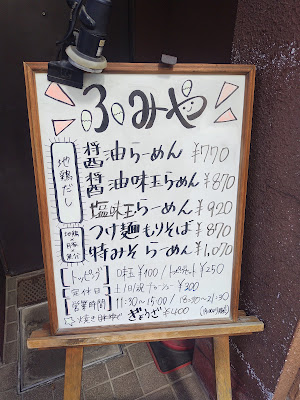 ふみや
地鶏だし
醤油らーめん ¥770
醤油味玉らーめん ¥870
塩味玉らーめん ¥920
地鶏 豚 魚介
つけ麺もりそば ¥870
特みそらーめん ¥1,070
トッピング 味玉 ¥100 / ¥250
定休日 土/日/祝 ¥300
営業時間 11:30~15:00 / 18:00~21:30
ぎょうざ ¥400